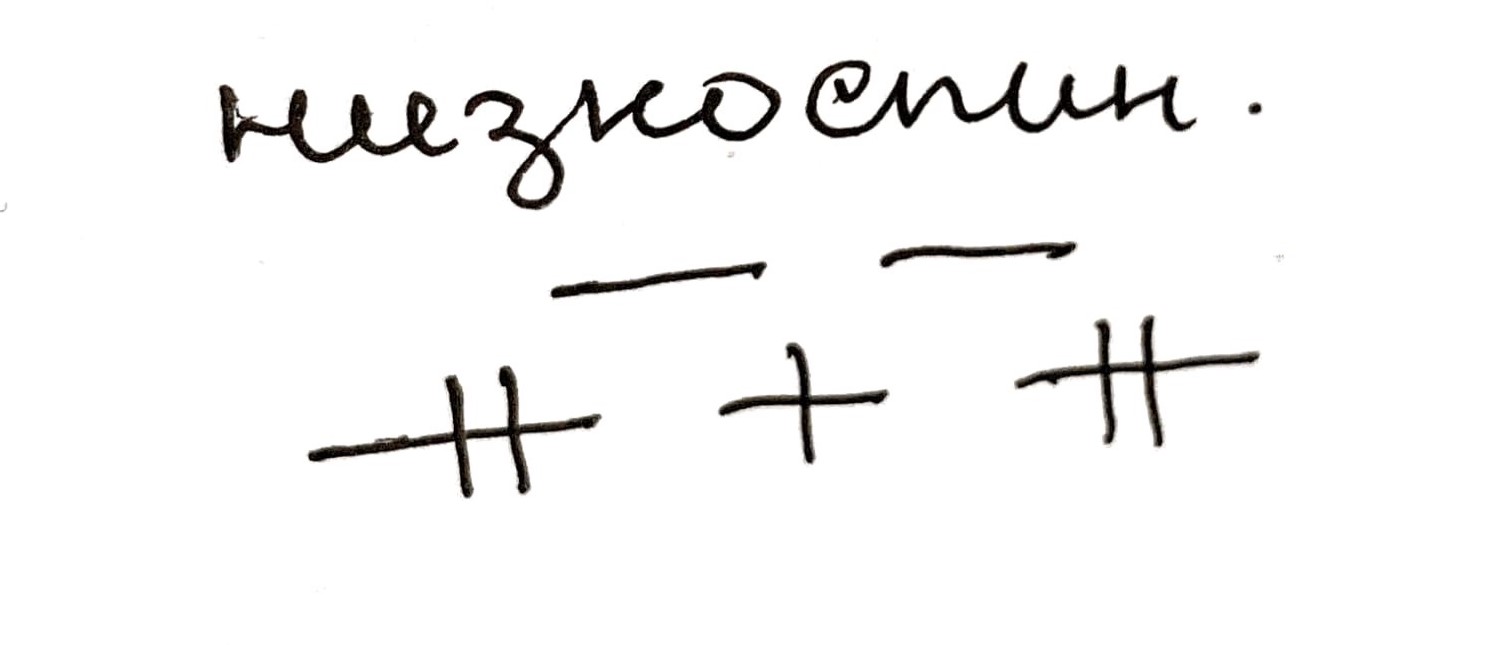 низкоспин.